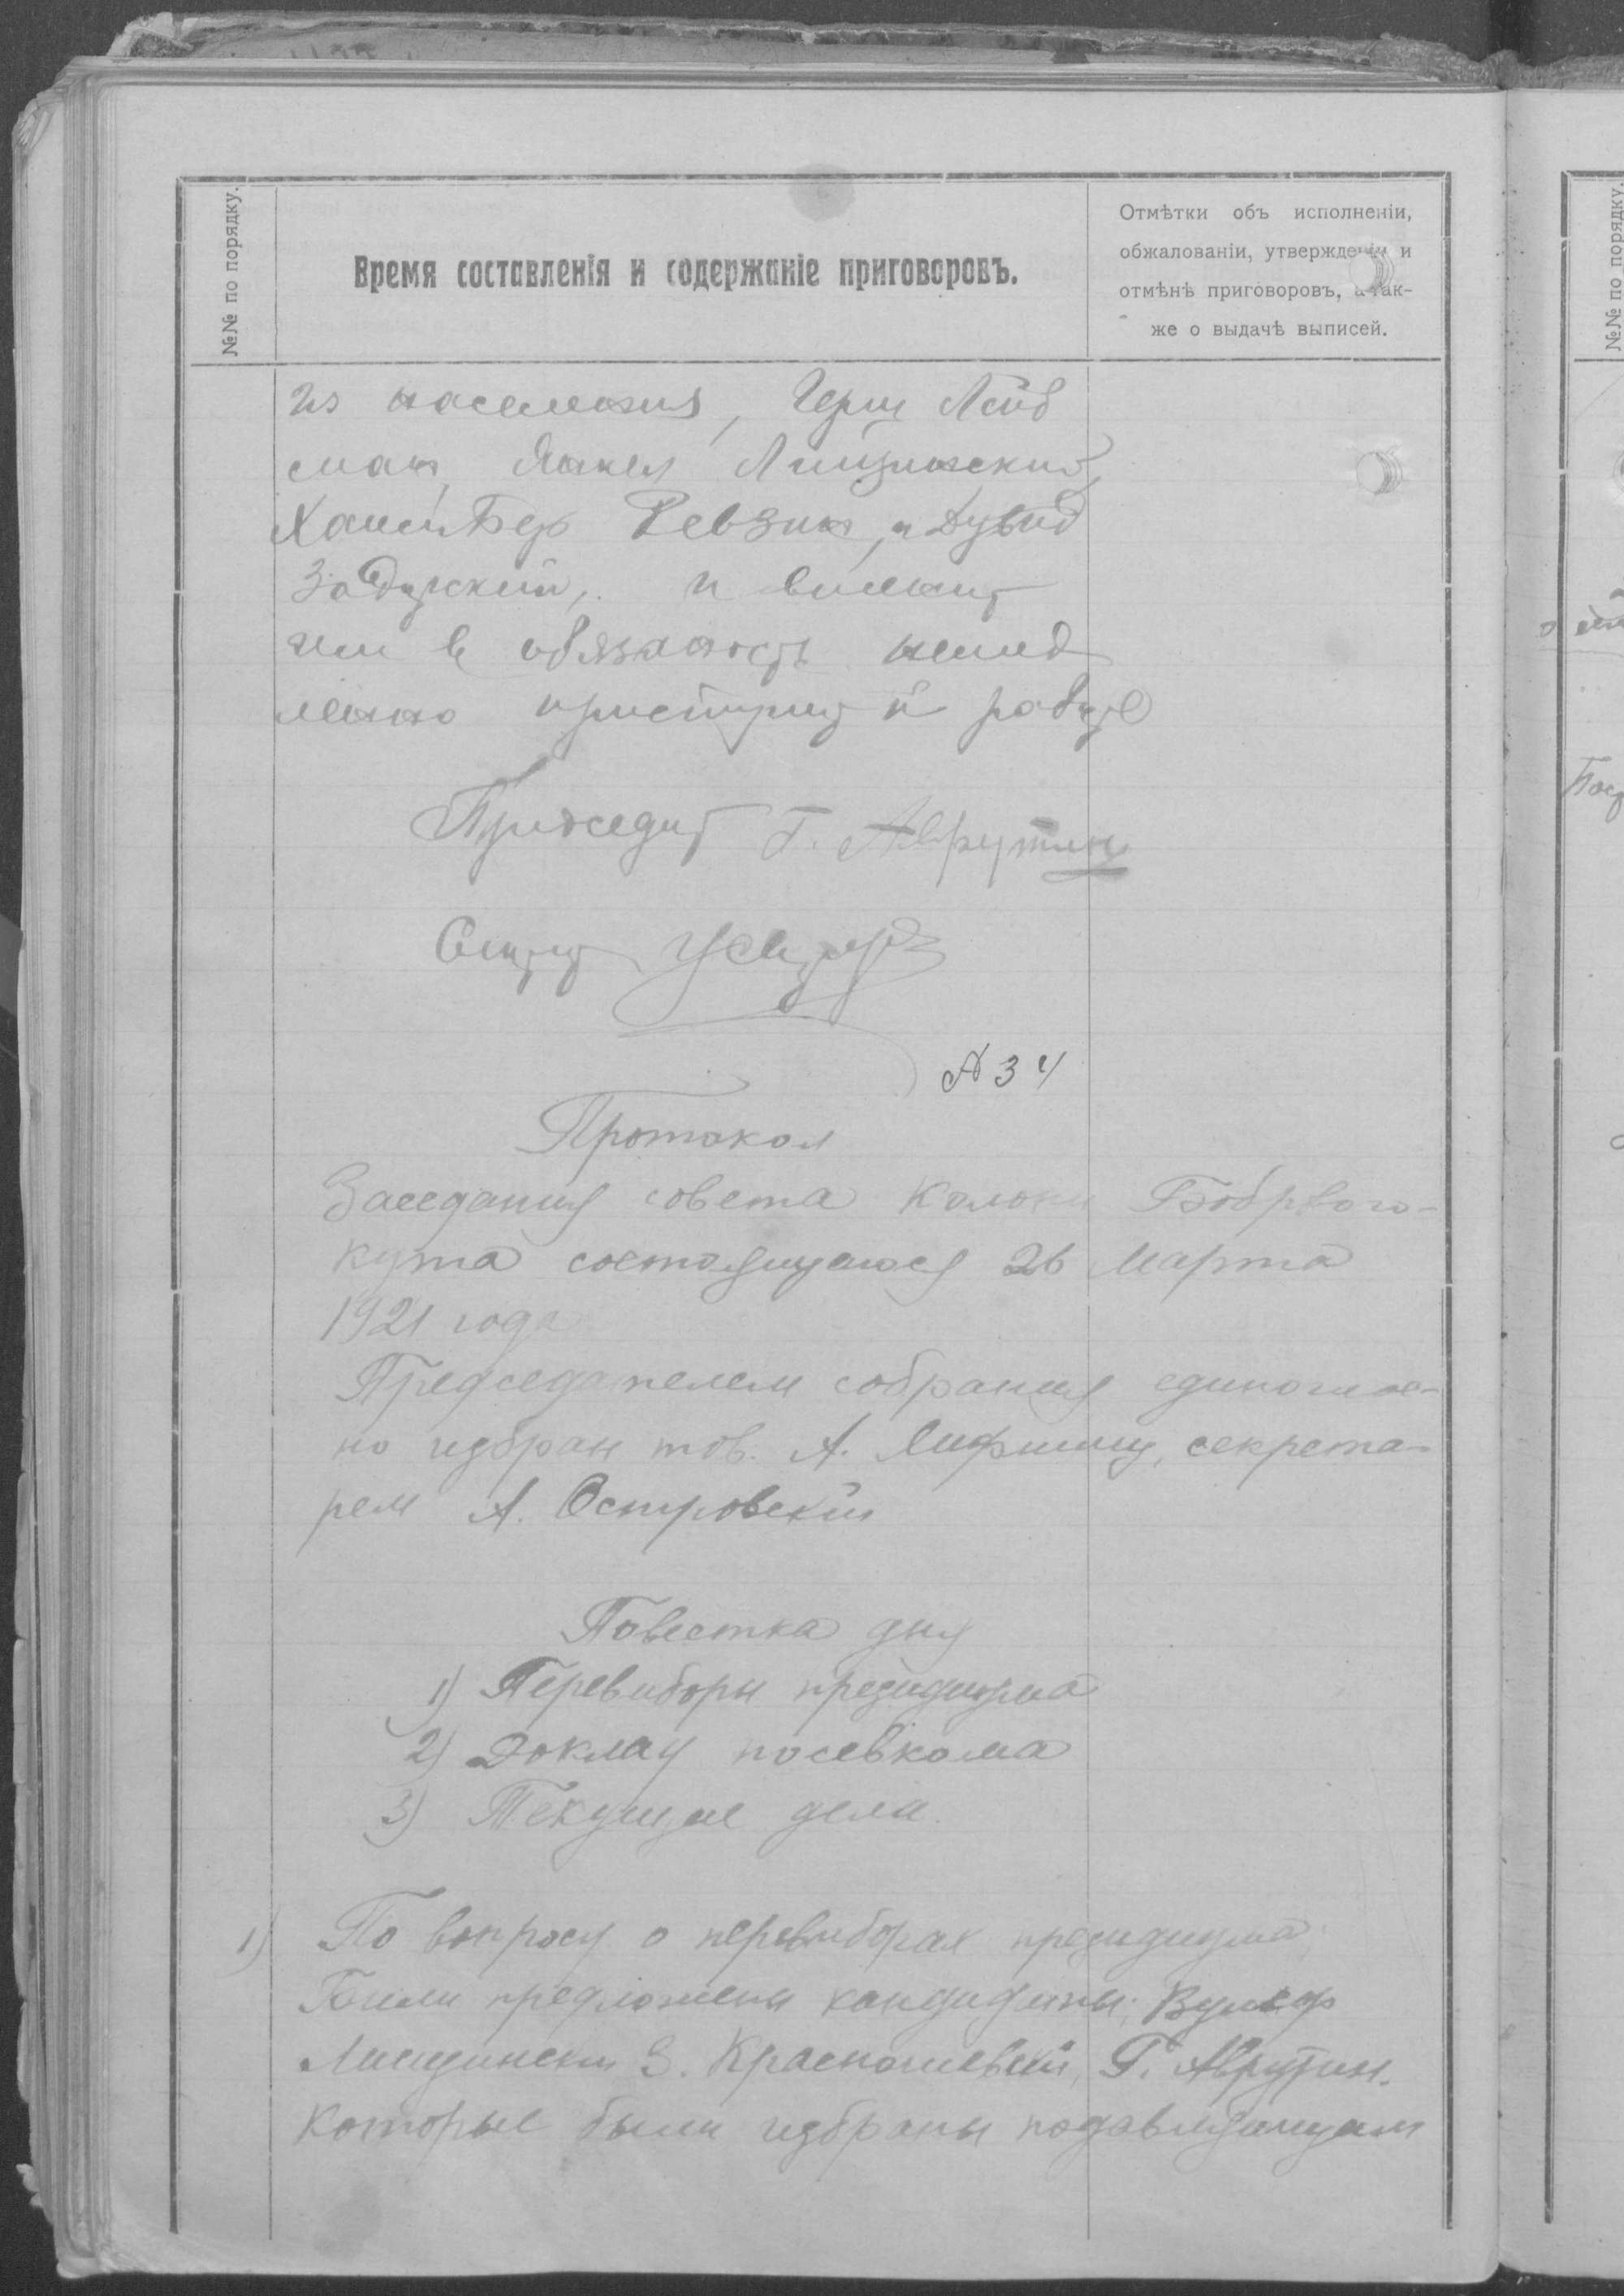 №№ по порядку.
Время составленія и содержаніе приговоровъ.
Отмѣтки объ исполненіи,
обжалованіи, утвержденіи и
отмѣнѣ приговоровъ, а так-
же о выдачѣ выписей.
из населения, Герш Лейб
ман, Янкел Лищинский,
Хаим Бер Ревзин, и Дувид
Задурский, и вменит
им в обязаность немед
ленно приступит к работе
Председат Г. Аврутин
Секрет
№ 34
Протокол
Заседания совета Колони Бобрового-
кута состоящуюся 26 Марта
1921 года
Председателем собрания единоглас-
но избран тов. А. Лифшиц, секрета-
рем А. Островский
Повестка дня
1) Перевиборы президиума
2) Доклад посевкома
3) Текущие дела.
1) По вопросу о перевиборах президиума
Били предложены кандидаты; Вульф
Лищински З. Краснопольский, Г. Аврутин.
которые были избраны подавляющим
№№ по порядку.